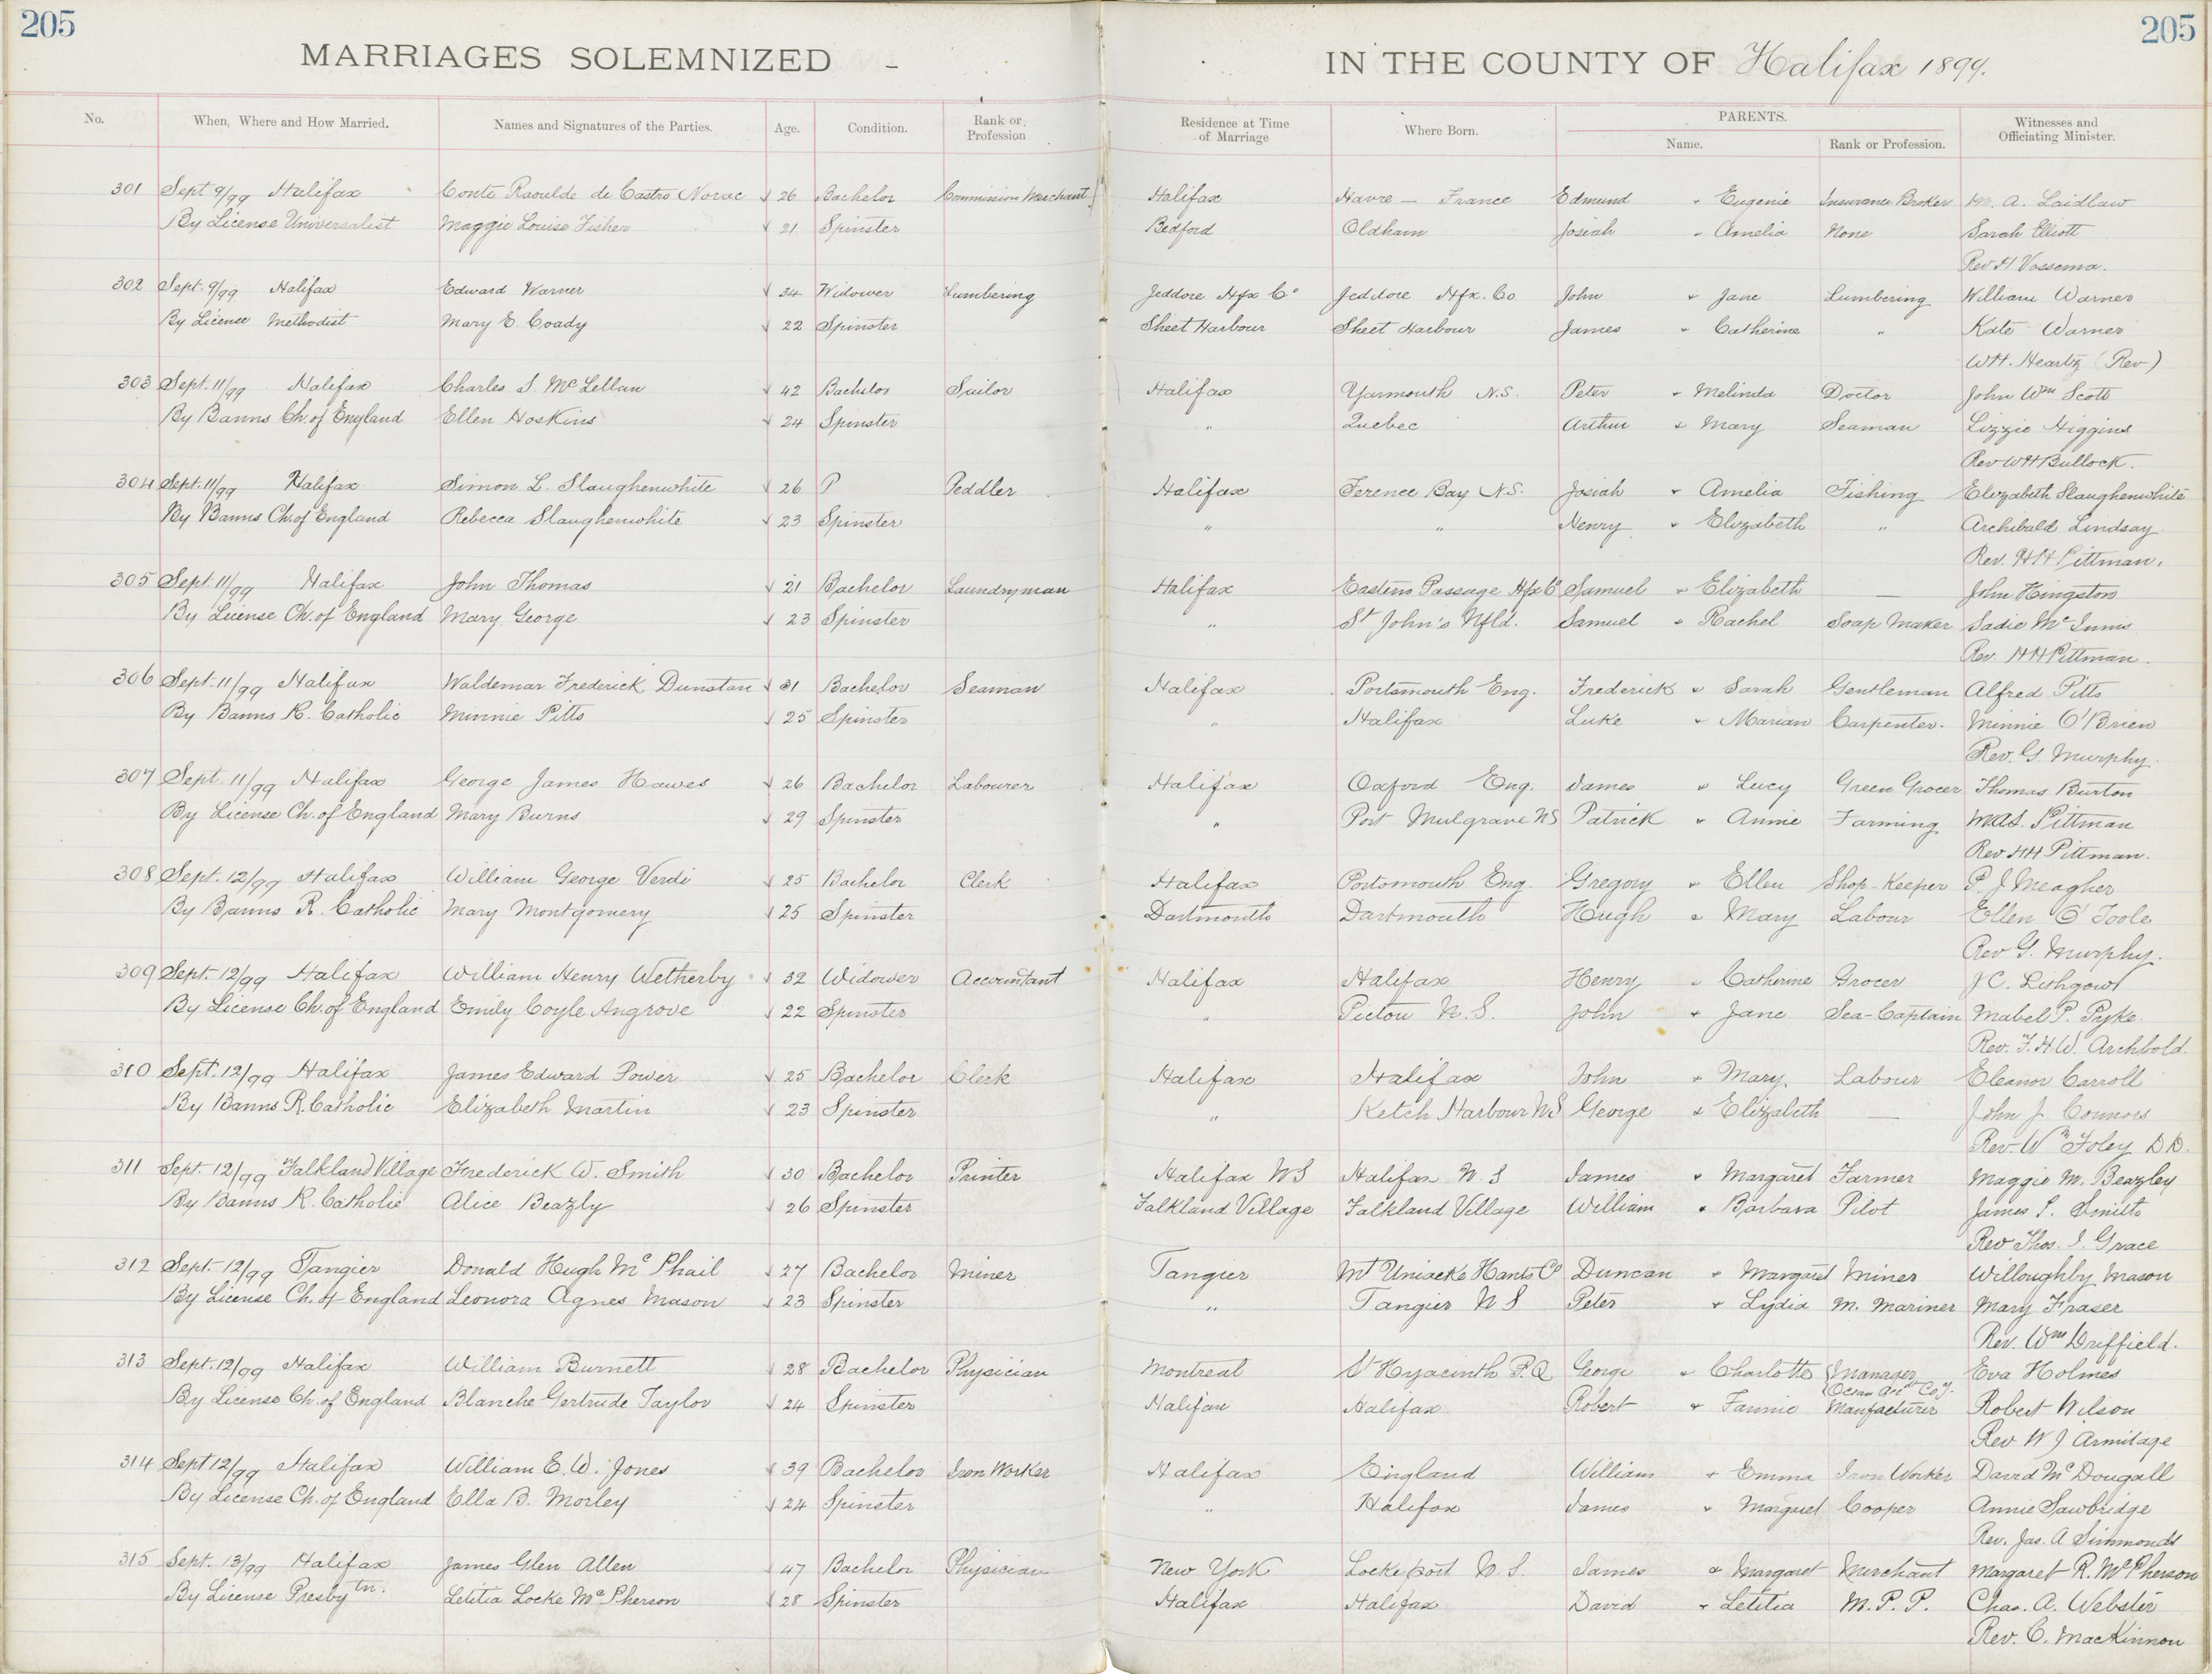 205
205
MARRIAGES SOLEMNIZED - IN THE COUNTY OF Halifax 1899.
No. When, Where and How Married. Names and Signatures of the Parties. Age. Condition. Rank or Profession Residence at Time of Marriage Where Born. PARENTS. Name. Rank or Profession. Witnesses and Officiating Minister.
301 Sept 9/99 Halifax Conte Raoulde de Castro Norac √ 26 Bachelor Commission Merchant Halifax Havre - France Edmund + Eugenie Insurance Broker M. A. Laidlaw
By License Universalist Maggie Louise Fisher √ 21 Spinster Bedford Oldham Josiah + Amelia None Sarah Elliott
Rev H Vossema.
302 Sept. 9/99 Halifax Edward Warner √ 34 Widower Lumbering Jeddore Hfx Co Jeddore Hfx. Co John + Jane Lumbering William Warner
By License Methodist Mary E. Coady √ 22 Spinster Sheet Harbour Sheet Harbour James + Catherine " Kate Warner
W.H. Heartz (Rev)
303 Sept. 11/99 Halifax Charles S. McLellan √ 42 Bachelor Sailor Halifax Yarmouth N.S. Peter + Melinda Doctor John Wm Scott
By Banns Ch. of England Ellen Hoskins √ 24 Spinster " Quebec Arthur + Mary Seaman Lizzie Higgins
Rev W H Bullock.
304 Sept. 11/99 Halifax Simon L. Slaughenwhite √ 26 P Peddler Halifax Terence Bay N.S. Josiah + Amelia Fishing Elizabeth Slaughenwhite
By Banns Ch. of England Rebecca Slaughenwhite √ 23 Spinster " " Henry + Elizabeth " Archibald Lindsay
Rev. H H Pittman.
305 Sept. 11/99 Halifax John Thomas √ 21 Bachelor Laundryman Halifax Eastern Passage Hfx Co Samuel + Elizabeth — John Kingston
By License Ch. of England Mary George √ 23 Spinster " St John's Nfld. Samuel + Rachel Soap Maker Sadie McInnis
Rev. H H Pittman.
306 Sept. 11/99 Halifax Waldemar Frederick Dunstan √ 31 Bachelor Seaman Halifax Portsmouth Eng. Frederick + Sarah Gentleman Alfred Pitts
By Banns R. Catholic Minnie Pitts √ 25 Spinster " Halifax Luke + Marian Carpenter. Minnie O'Brien
Rev. G. Murphy.
307 Sept. 11/99 Halifax George James Hawes √ 26 Bachelor Labourer Halifax Oxford Eng. James + Lucy Green Grocer Thomas Burton
By License Ch. of England Mary Burns √ 29 Spinster " Port Mulgrave NS Patrick + Annie Farming Pittman
Rev H H Pittman.
308 Sept. 12/99 Halifax William George Verdi √ 25 Bachelor Clerk Halifax Portsmouth Eng. Gregory + Ellen Shop-Keeper P. J Meagher
By Banns R. Catholic Mary Montgomery √ 25 Spinster Dartmouth Dartmouth Hugh + Mary Labour Ellen O'Toole
Rev G. Murphy.
309 Sept. 12/99 Halifax William Henry Wetherby √ 32 Widower Accountant Halifax Halifax Henry + Catherine Grocer J C. Lithgow
By License Ch. of England Emily Coyle Angrove √ 22 Spinster " Pictou N.S. John + Jane Sea-Captain Mabel P. Pyke.
Rev. F. H. W. Archbold.
310 Sept. 12/99 Halifax James Edward Power √ 25 Bachelor Clerk Halifax Halifax John + Mary. Labour Eleanor Carroll
By Banns R. Catholic Elizabeth Martin √ 23 Spinster " Ketch Harbour NS George + Elizabeth — John J. Connors
Rev. Wm Foley D.D.
311 Sept. 12/99 Falkland Village Frederick W. Smith √ 30 Bachelor Printer Halifax NS Halifax N.S James + Margaret Farmer Maggie M. Beazley
By Banns R. Catholic Alice Beazly √ 26 Spinster Falkland Village Falkland Village William + Barbara Pilot James P. Smith
Rev Thos. S. Grace
312 Sept. 12/99 Tangier Donald Hugh McPhail √ 27 Bachelor Miner Tangier Mt Uniacke Hants Co Duncan + Margaret Miner Willoughby Mason
By License Ch. of England Leonora Agnes Mason √ 23 Spinster " Tangier N S Peter + Lydia M. Mariner Mary Fraser
Rev. Wm Driffield.
313 Sept. 12/99 Halifax William Burnett √ 28 Bachelor Physician Montreal St Hyacinth P.Q George + Charlotte Manager Ocean Co'y. Eva Holmes
By License Ch. of England Blanche Gertrude Taylor √ 24 Spinster Halifax Halifax Robert + Fannie Manfacturer Robert Wilson
Rev W J Armitage
314 Sept 12/99 Halifax William E. W. Jones √ 39 Bachelor Iron Worker Halifax England William + Emma Iron Worker David McDougall
By License Ch. of England Ella B. Morley √ 24 Spinster " Halifax James + Margaret Cooper Annie Sawbridge
Rev. Jas. A Simmonds
315 Sept. 13/99 Halifax James Glen Allen √ 47 Bachelor Physician New York Lockeport N.S. James + Margaret Merchant Margaret R. McPherson
By License Presbytn. Letitia Locke McPherson √ 28 Spinster Halifax Halifax David + Letitia M.P.P. Chas. A. Webster
Rev. C. MacKinnon